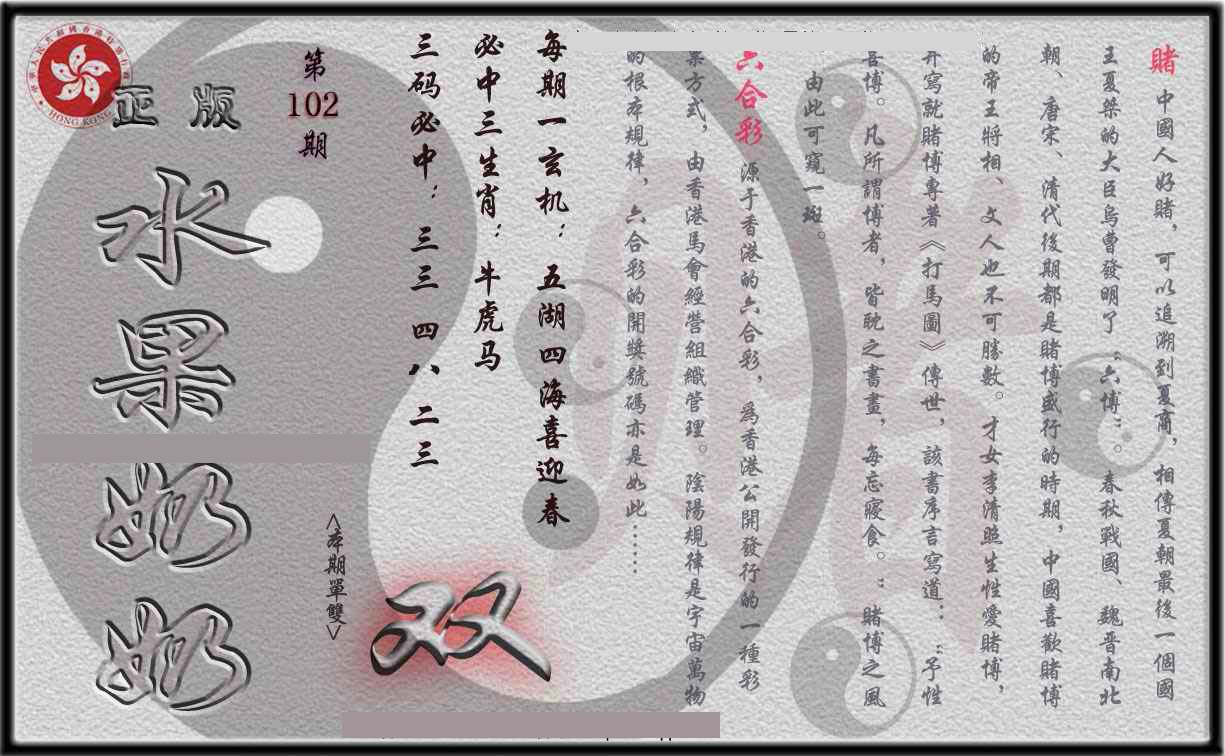 賭 中國人好賭，可以追溯到夏商，相傳夏朝最後一個國
王夏桀的大臣烏曹發明了“六博”。春秋戰國、魏晋南北
朝、唐宋、清代後期都是賭博盛行的時期，中國喜歡賭博
的帝王將相、文人也不可勝數。才女李清照生性愛賭博，
并寫就賭博專著《打馬圖》傳世，該書序言寫道：“予性
喜博。凡所謂博者，皆耽之書畫，每忘寢食。”賭博之風
由此可窺一斑。
六合彩 源于香港的六合彩，爲香港公開發行的一種彩
票方式，由香港馬會經營組織管理。陰陽規律是宇宙萬物
的根本規律，六合彩的開獎號碼亦是如此……
每期一玄机：五湖四海喜迎春
必中三生肖：牛虎马
三码必中：三三 四八 二三
双
<本期單雙>
第
102
期
正版
水果奶奶
HONG KONG